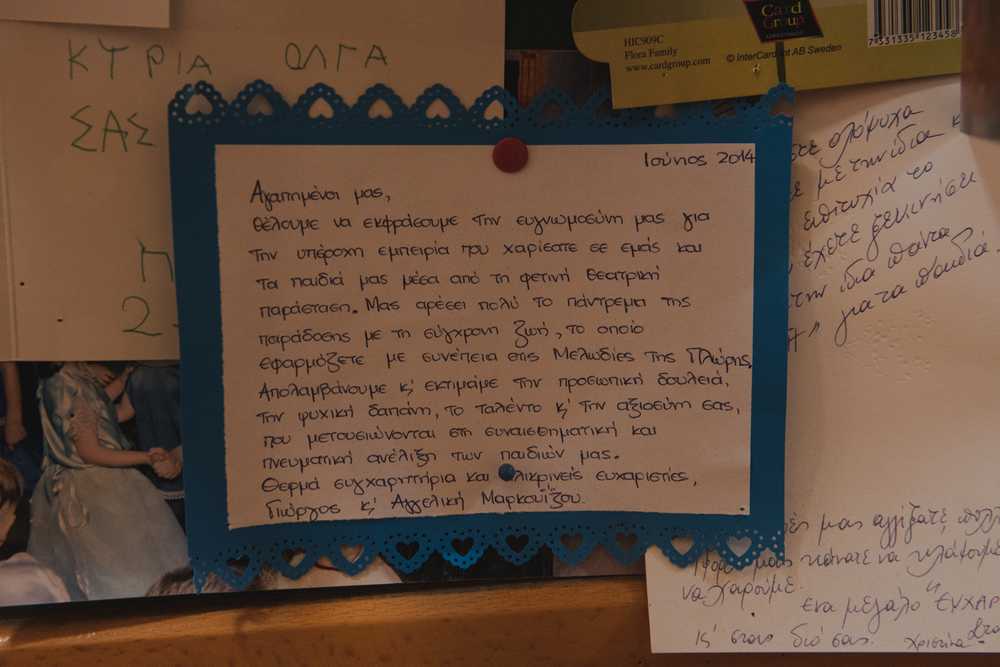 ΚΥΡΙΑ ΟΛΓΑ
ΣΑΣ
Π
2
Card
Group
HIC909C
Flora Family
www.cardgroup.com
© InterCard AB Sweden
7 331335 123458
Ιούνιος 2014
Αγαπημένοι μας,
Θέλουμε να εκφράσουμε την ευγνωμοσύνη μας για
την υπέροχη εμπειρία που χαρίσατε σε εμάς και
τα παιδιά μας μέσα από τη φετινή θεατρική
παράσταση. Μας αρέσει πολύ το πάντρεμα της
παράδοσης με τη σύγχρονη ζωή, το οποίο
εφαρμόζετε με συνέπεια στις Μελωδίες της Πλώρης.
Απολαμβάνουμε κ' εκτιμάμε την προσωπική δουλειά,
την ψυχική δαπάνη, το ταλέντο κ' την αξιοσύνη σας,
που μετουσιώνονται στη συναισθηματική και
πνευματική ανέλιξη των παιδιών μας.
Θερμά συγχαρητήρια και ειλικρινείς ευχαριστίες,
Γιώργος κ' Αγγελική Μαρκουΐζου.
ολόψυχα
με την ίδια
επιτυχία το
έχετε ξεκινήσει
την ίδια πάντα
για τα παιδιά.
μας αγγίξατε, πολλές
μας κάνατε να κλάψουμε
να χαρούμε.
ένα μεγάλο "ΕΥΧΑΡ
κ' στους διό σας. Χριστίνα